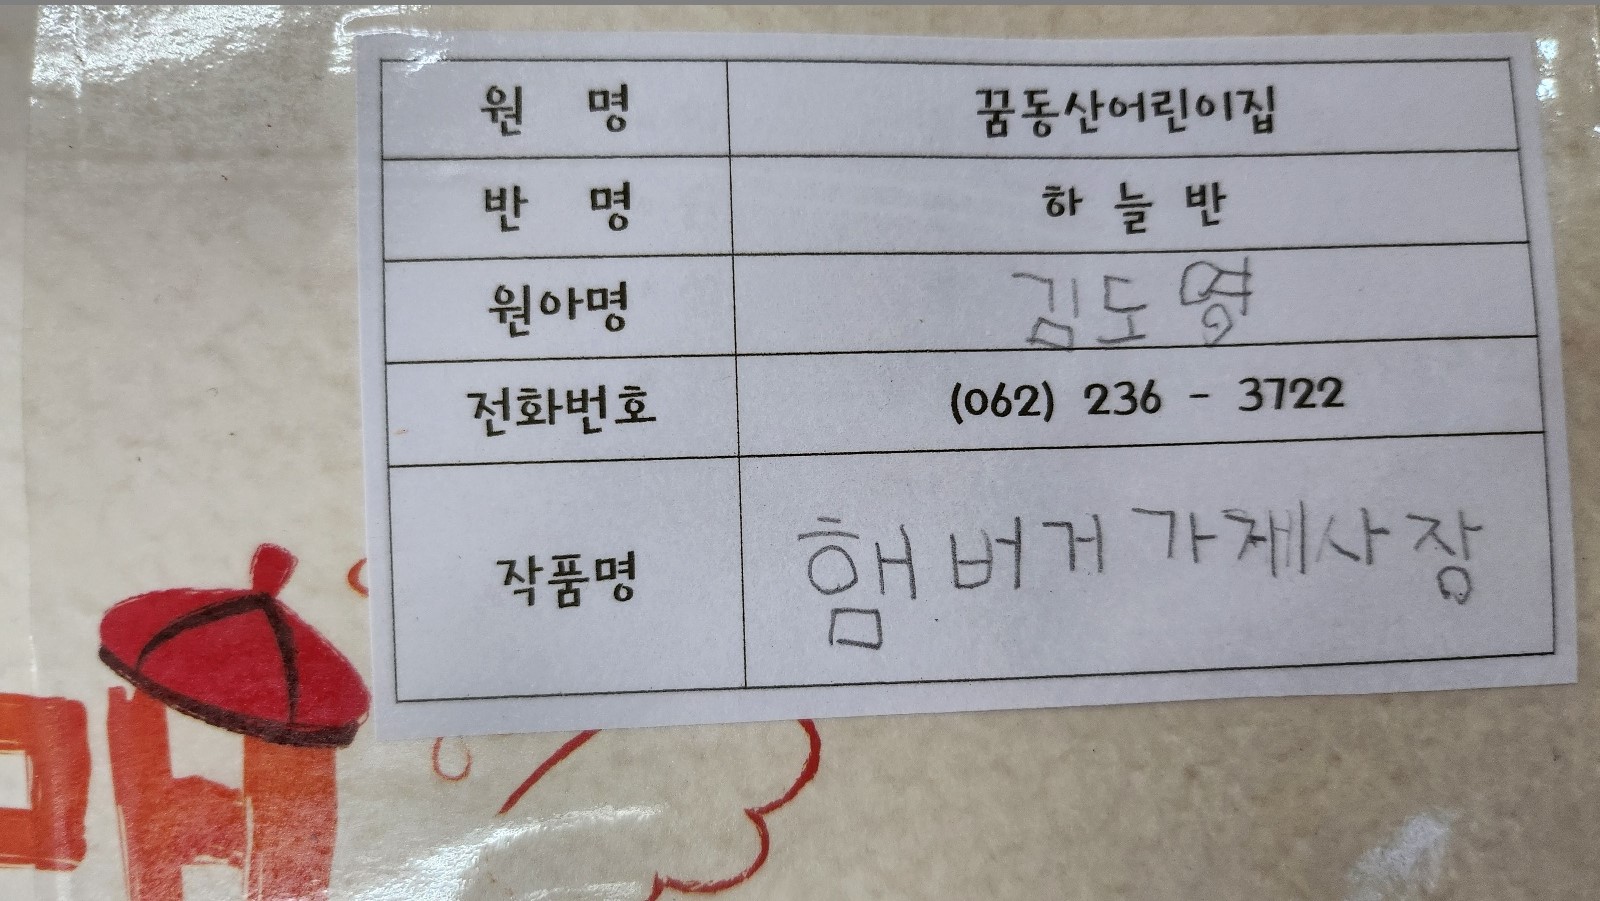 원 명 꿈동산어린이집
반 명 하 늘 반
원아명 김도영
전화번호 (062) 236 - 3722
작품명 햄버거 가채사장